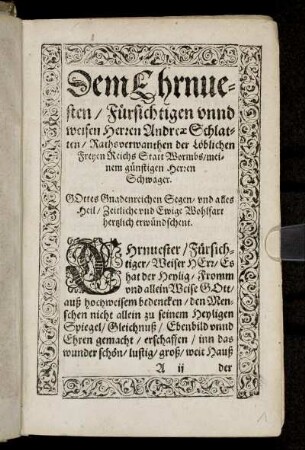 Dem Ehrnue-
sten / Fürsichtigen vnnd
weisen Herren Andreæ Schlat-
ten / Rathsverwanthen der Löblichen
Freyen Reichs Statt Wormbs / mei-
nem günstigen Herren
Schwager.
GOttes Gnadenreichen Segen / vnd alles
Heil / Zeitliche vnd Ewige Wohlfart
hertzlich erwündschent.
EHrnuester / Fürsich-
tiger / Weiser HErr / Es
hat der Heylig / Fromm
vnd allein Weise GOtt /
auß hochweisem bedencken / den Men-
schen nicht allein zu seinem Heyligen
Spiegel / Gleichnuß / Ebenbild vnnd
Ehren gemacht / erschaffen / inn das
wunder schön / lustig / groß / weit Hauß
A ii der